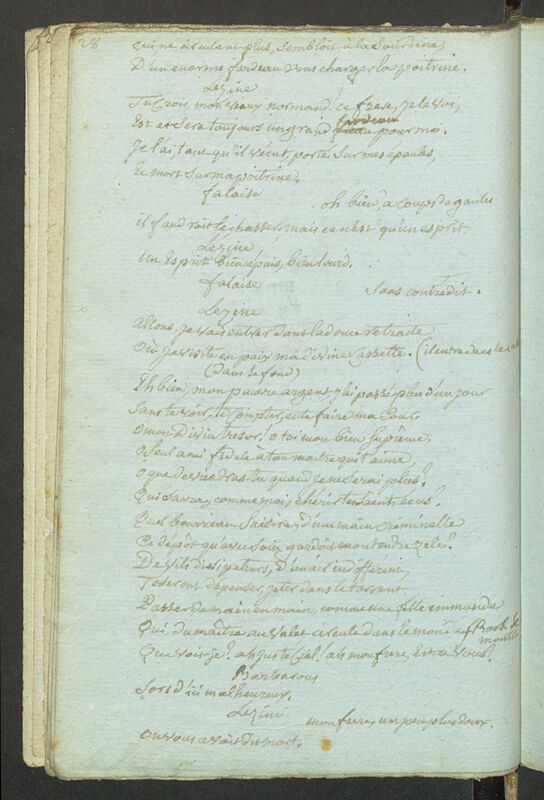 28
qui ne circulant plus, sembloit à la sourdine,
D'un enorme fardeau vous charger la poitrine.
Lezine
Tu crois, mon veaux normand! ce frere, je le voi,
Est et sera toujours un grand fardeau pour moi.
Je l'ai, tant qu'il vécut, porté sur mes épaules,
Et mort sur ma poitrine.
falaise
oh bien, à coups de gaules
il faudroit le chasser, mais ce n'est qu'un esprit
Lezine
Un Esprit bien épais, bien lourd.
falaise
Sans contredit.
Lezine
allons, je vais entrer dans la douce retraite
Où je visite en paix ma divine cassette. (il entre dans le
(dans le fond)
Eh bien, mon pauvre argent, j'ai passé plus d'un jour
Sans te voir, te compter, et te faire ma cour
O mon divin tresor! o toi mon bien suprême,
O seul ami fidele a ton maitre qui t'aime
O que deviendras tu quand je ne serai plus?
Qui saura, comme moi, cherir tes saints écus?
Quel bourreau saisira, d'une main criminelle
Ce dépôt qu'avec soin gardoit mon tendre zele?
De vils dissipateurs, d'un air indifférent,
T'oseront dépenser, jeter dans le torrent
Passer de main en main, comme une fille immonde
Qui du maître au valet circule dans le monde (Barb. se montre
Que vois-je? ah juste Ciel! ah mon frere, Est-ce vous?
Barbarous
Sors d'ici malheureux.
Lezine
mon frere, un peu plus doux.
On vous avoit dit mort.